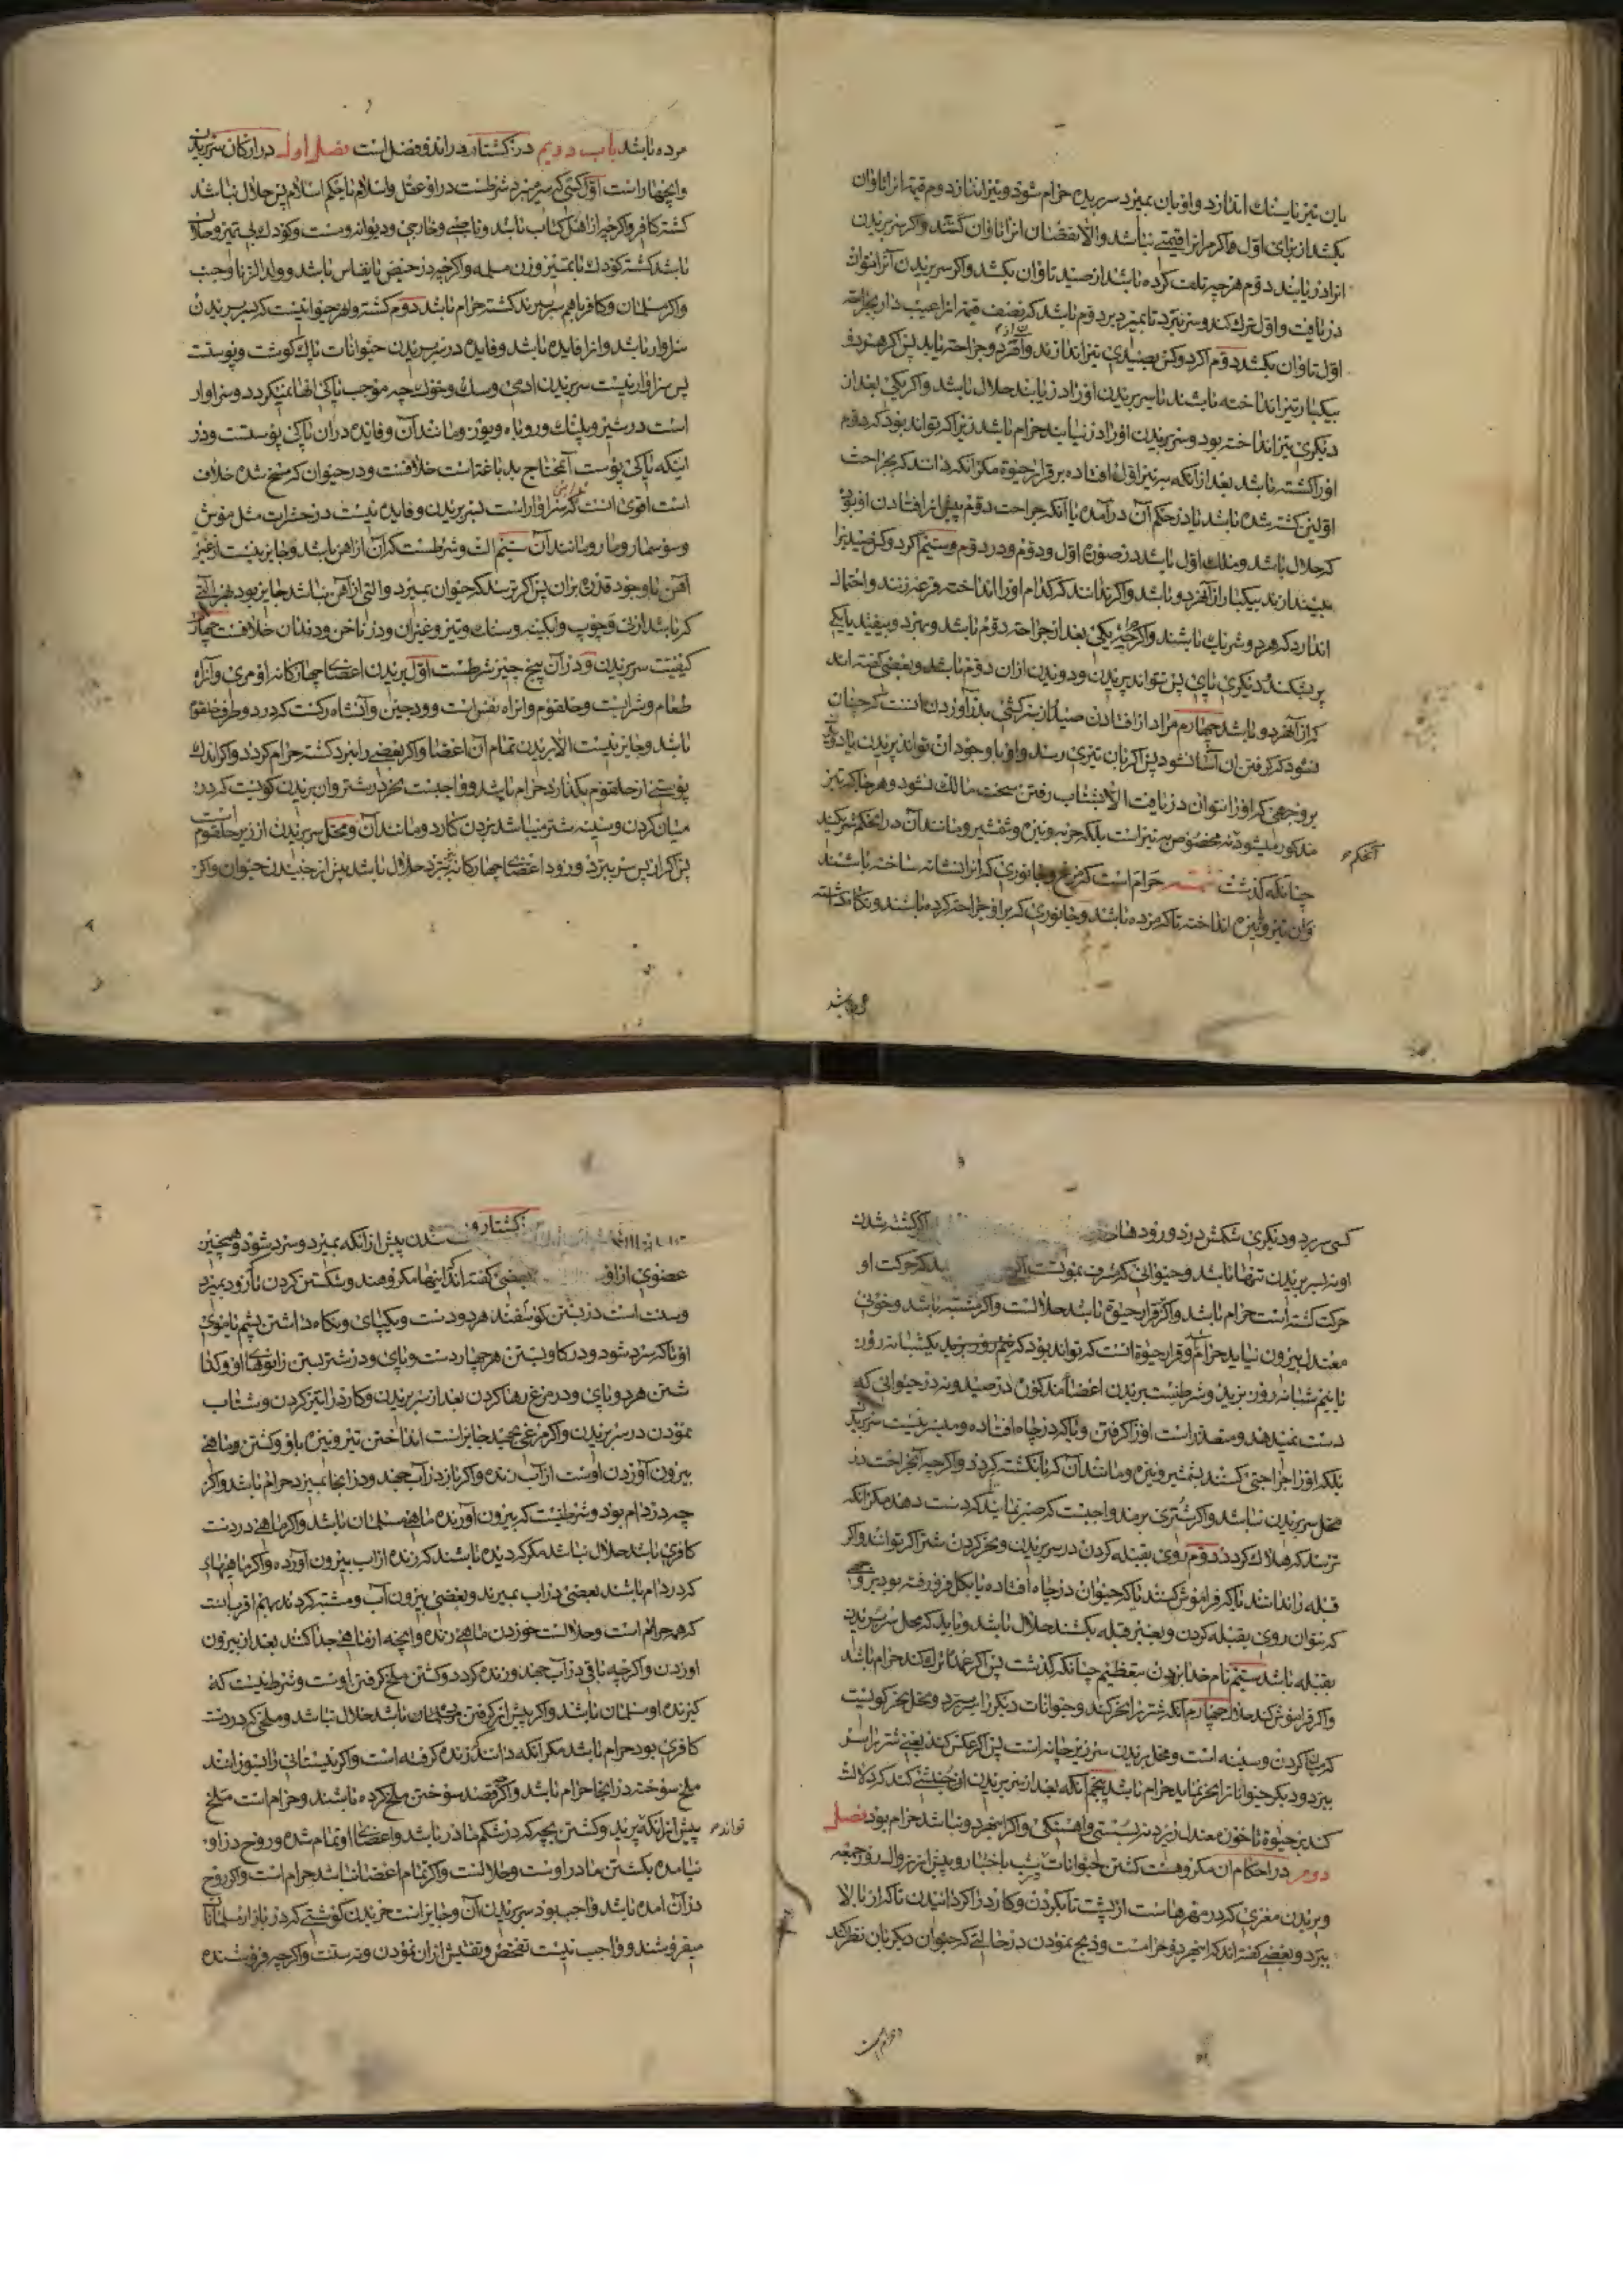 یان تیز یا سنک اندازد و او بان بمیرد سر بریده حرام شود و تیرانداز دوم قیمة انرا تاوان
بکشد از برای اول و اکر مر انرا قیمتی نباشد و الا نقصان انرا تاوان کشد و اکر سر بریدن
انرا دریابند دوم هرچه تلف کرده باشد از صید تاوان بکشد و اکر سر بریدن آنرا نتوان
دریافت و اول ترک کند و سر نبرد تا بمیرد بر دوم باشد که نصف قیمة انرا عیب دار بجراحة
اول تاوان بکشد دوم اکر دو کس بصیدی تیر اندازند و انمرد و جراحة یابد پس اکر هر دو
بیکبار تیر انداخته باشند یا سر بریدن اورا دریابند حلال باشد و اکر یکی بعد از
دیکری تیر انداخته بود و سر بریدن اورا در نیابند حرام باشد زیرا که تواند بود که دوم
اورا کشته باشد بعد از آنکه بتیر اول افتاده بر قرار حیوة مکر آنکه دانند که بجراحت
اولین کشته شده باشد یا در حکم آن درآمده یا آنکه جراحت دوم پیش از افتادن او بود
که حلال باشد و ملک اول باشد در صورة اول و دوم و در دوم و سیّم اکر دو کس صید را
بیندازند بیکبار از آنهر دو باشد و اکر ندانند که کدام اورا انداخته قرعه زنند و احتمال
اندارد که هر دو شریک باشند و اکرچه یکی بعد از جراحة دوم باشد و بمیرد و بیفتد یا یکی
پر بشکند و دیکری پای پس تواند پریدن و دویدن ازان دوم باشد و بعضی کفته اند
که از آنهر دو باشد چهارم مراد از افتادن صید از سرکشی بدر آوردن است که چنان
شود که کرفتن ان آسان شود پس اکر بان تیری رسد و او با وجود ان تواند پریدن یا دویدن
بر وجهی که اورا نتوان دریافت الا بشتاب رفتن سخت مالک نشود و هر جا که تیر
مذکور میشود نه مخصوص بتیر است بلکه حربه و نیزه و شمشیر و مانند آن در انحکم شریکند
آنحکم
چنانکه کذشت تتمه حرام است کرفتن مرغ و جانوری که انرا نشانه ساخته باشند
وان تیر و نیزه انداخته تا که مرده باشد و جانوری که بر او جراحة کرده باشند و نکاهداشته
مرده باشد
مرده باشد باب دویم در کشتار و دراندو فصل است فصل اول در ارکان سر بریدن
و انچهار است اول کسی که سر میبرد شرطست در او عقل و اسلام یا حکم اسلام پس حلال نباشد
کشته کافر و اکرچه از اهل کتاب باشد و ناصبی و خارجی و دیوانه و مست و کودک بی تمیز و حلال
باشد کشته کودک با تمیز و زن مسلمه و اکرچه در حیض یا نفاس باشد و ولد الزنا و جنب
و اکر مسلمان و کافر باهم سر ببرند کشته حرام باشد دوم کشته و او هر حیوانیست که سر بریدن
سزاوار باشد و انرا فایده باشد و فایده در سر بریدن حیوانات پاک کوشت و پوستست
پس سزاوار نیست سر بریدن ادمی و سک و خوک چه موجب پاکی انها نمیکردد و سزاوار
است در شیر و پلنک و روباه و یوز و مانند آن و فایده دران پاکی پوستست و در
اینکه پاکی پوست آنمحتاج بدباغتست خلافست و در حیوان که مسخ شده خلاف
است اقوی انست که سزاوار است بسر بریدن و فایده نیست در حشرات مثل موش
و سوسمار و مار و مانند آن سیّم الت و شرطست که آن از اهن باشد و جایز نیست از غیر
آهن با وجود قدرة بران پس اکر ترسند که حیوان بمیرد و التی از آهن نباشد جایز بود بهر التی
که باشد از نی و چوب و ابکینه و سنک و تیز و غیران و در ناخن و دندان خلافست چهارم
کیفیت سر بریدن و در آن پنج چیز شرطست اول بریدن اعضای چهارکانه او مری و آنراه
طعام و شرابست و حلقوم و انراه نفس است و ودجین و آنشاه رکست که در دو طرف حلقوم
باشد و جایز نیست الا بریدن تمام آن اعضا و اکر بعضی را نبرد کشته حرام کردد و اکر اندک
پوستی از حلقوم بکذارد حرام باشد و واجبست نحر در شتر وان بریدن کویست که در
میان کردن و سینه شتر میباشد بزدن کارد و مانند آن و محل سر بریدن از زیر حلقوم است
پس اکر از پس سر ببرد و زود اعضای چهارکانه ببرد حلال باشد پیش از جنبیدن حیوان و اکر
کسی سر برد و دیکری شکمش درد و رودها اکر کشته شدن
او بسر بریدن تنها باشد و حیوانی که مشرف بموتست اکر که حرکت او
حرکت کشته است حرام باشد و اکر قرار حیوة باشد حلالست و اکر مشتبه باشد و خونی
معتدل بیرون نیاید حرام و قرار حیوة انست که تواند بود که نیم روز بزید یکشبانه روز
یا نیم شبانه روز بزید و شرطنیست بریدن اعضا مذکوره در صید و نه در حیوانی که
دست نمیدهد و متعذر است اورا کرفتن و یا که در چاه افتاده و میسر نیست سر بریدن
بلکه اورا جراحتی کنند بشمشیر و نیزه و مانند آن که تا بانکشته کردد و اکرچه آنجراحت در
محل سر بریدن نباشد و اکر شتری برمد واجبست که صبر نمایند که دست دهد مکر انکه
ترسند که هلاک کردد دوم روی بقبله کردن در سر بریدن و نحر کردن شتر اکر توانند و اکر
قبله را ندانند یا که فراموش کنند یا که حیوان در چاه افتاده یا بکل فرو رفته بود بر وجهی
که نتوان روی بقبله کردن و بغیر قبله بکشند حلال باشد و باید که محل سر بریدن
بقبله باشد سیّم نام خدا بردن بتعظیم چنانکه کذشت پس اکر عمدا ترک کند حرام باشد
و اکر فراموش کند حلال چهارم آنکه شتر را نحر کند و حیوانات دیکر را سر برد و محل نحر کویست
که میان کردن و سینه است و محل بریدن سر زیر چانه است پس اکر عکس کند یعنی شتر را سر
ببرد و دیکر حیوانانرا نحر نماید حرام باشد پنجم آنکه بعد از سر بریدن او جنبشی کند که دلالت
کند بر حیوة تا خون معتدل رود نه بسستی و اهستکی و اکر اینهر دو نباشد حرام بود فصل
دوم در احکام ان مکروهست کشتن حیوانات بشب باختیار و پیش از زوال روز جمعه
و بریدن مغزی که در مهرهاست از پشت تا بکردن و کارد را کردانیدن تا که از بالا
ببرد و بعضی کفته اند که اینهر دو حرامست و ذبح نمودن در حالتی که حیوان دیکر بان نظر کند
و حرام است
کشتار و شدن پیش از آنکه بمیرد و سرد شود و همچنین
عضوی از او بعضی کفته اند اینها مکروهند و شکستن کردن تا زود بمیرد
و سنت است در بستن کوسفند هر دو دست و یکپای و نکاه داشتن پشم یا موی
او تا که سرد شود و در کاو بستن هر چهار دست و پای و در شتر بستن زانوهای او و کذا
شتن هر دو پای و در مرغ رها کردن بعد از سر بریدن و کارد را تیز کردن و شتاب
نمودن در سر بریدن و اکر مرغی بجهد جایز است انداختن تیر و نیزه باو و کشتن و ماهی
بیرون آوردن اوست از آب زنده و اکر باز در آب جهد و در انجا بمیرد حرام باشد و اکر
چه در دام بود و شرطنیست که بیرون آورنده ماهی مسلمان باشد و اکر ماهی در دست
کافری باشد حلال نباشد مکر که دیده باشند که زنده از اب بیرون آورده و اکر ماهیهای
که در دام باشند بعضی در اب بمیرند و بعضی بیرون آب و مشتبه کردند بهم اقرب انست
که همه حرام است و حلالست خوردن ماهی زنده و انچه از ماهی جدا کنند بعد از بیرون
اوردن و اکرچه باقی در آب جهد و زنده کردد و کشتن ملخ کرفتن اوست و شرطنیست که
کیرنده او مسلمان باشد و اکر پیش از کرفتن بمیرد حلال نباشد و ملخی که در دست
کافری بود حرام باشد مکر آنکه دانند که زنده کرفته است و اکر نیستانی را بسوزانند
ملخ سوخته در انجا حرام باشد و اکرچه قصد سوختن ملخ کرده باشند و حرام است ملخ
پیش از انکه پرید و کشتن بچه که در شکم مادر باشد و اعضای او تمام شده و روح در او
تواند
نیامده بکشتن مادر اوست و حلالست و اکر تمام اعضا نباشد حرام است و اکر روح
در آن امده باشد واجب بود سر بریدن آن و جایز است خریدن کوشتی که در بازار مسلمانان
میفروشند و واجب نیست تفحص و تفتیش ازان نمودن و نه سنت و اکرچه فروشنده